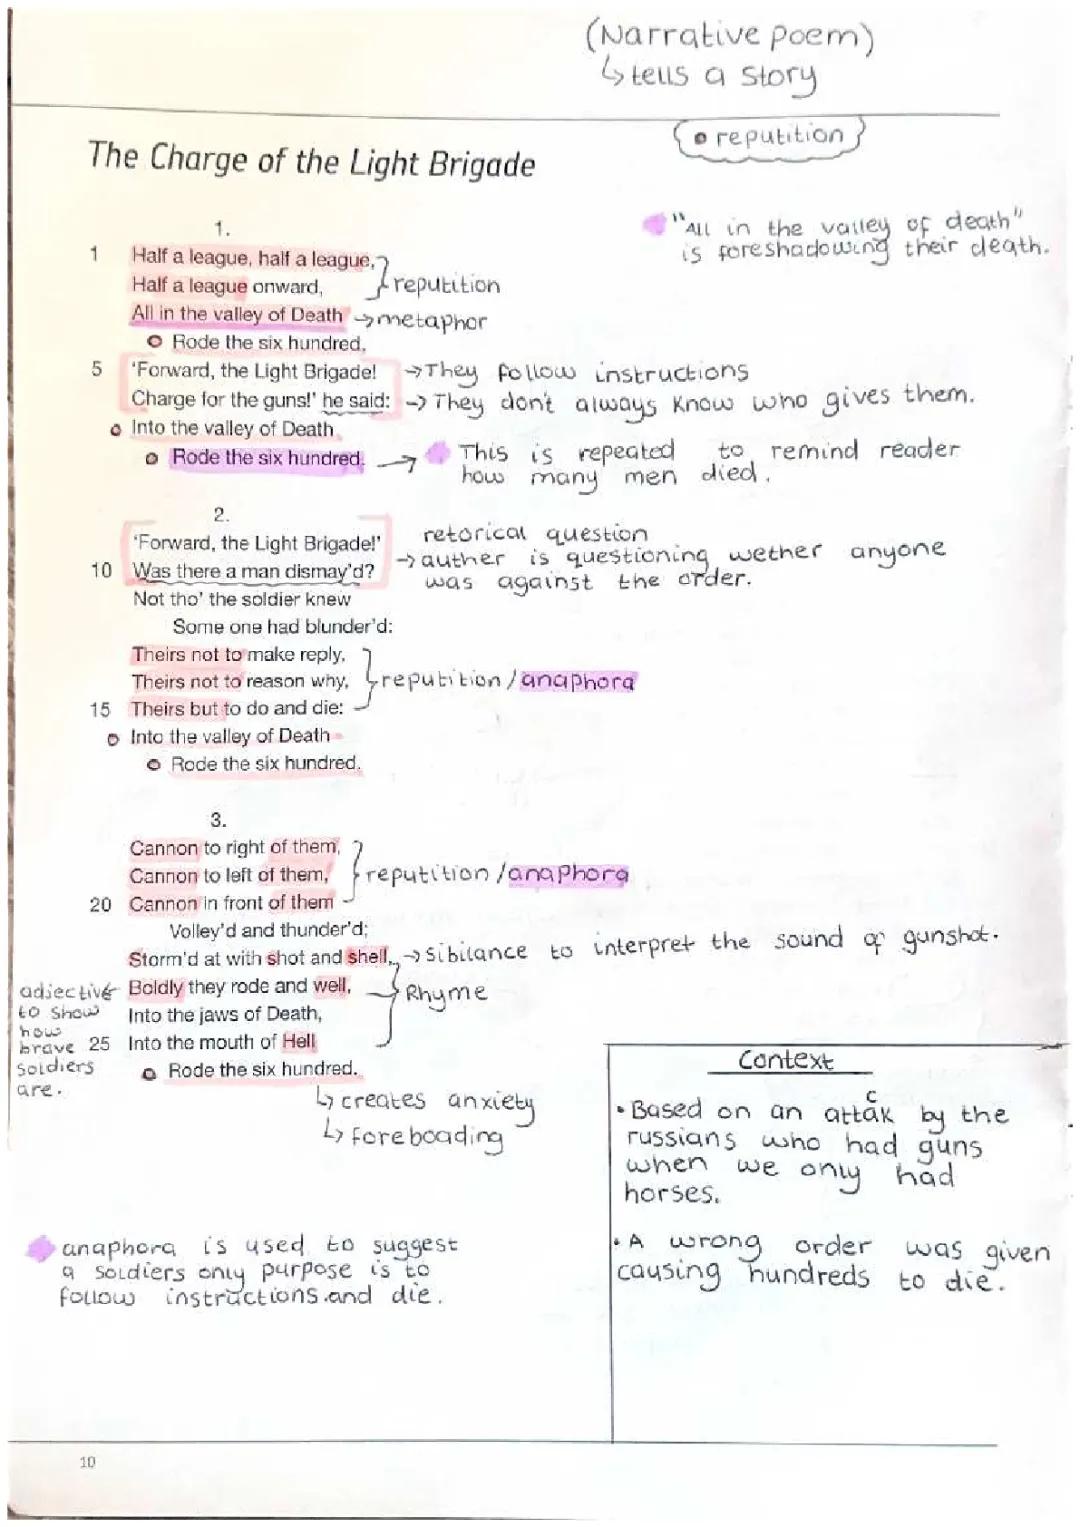 (Narrative poem)
↳ tells a story
• reputition
The Charge of the Light Brigade
"All in the valley of death"
is foreshadowing their death.
1.
1 Half a league, half a league,
Half a league onward,
reputition
All in the valley of Death →metaphor
Rode the six hundred.
5 'Forward, the Light Brigade! →They follow instructions
Charge for the guns!' he said: → They don't always know who gives them.
Into the valley of Death
Rode the six hundred. → This is repeated to remind reader
how many men died.
2.
'Forward, the Light Brigade!' retorical question
10 Was there a man dismay'd? → auther is questioning wether anyone
was against the order.
Not tho' the soldier knew
Some one had blunder'd:
Theirs not to make reply,
Theirs not to reason why, reputition / anaphora
15 Theirs but to do and die:
Into the valley of Death
Rode the six hundred.
3.
Cannon to right of them,
Cannon to left of them, reputition / anaphora
20 Cannon in front of them
Volley'd and thunder'd;
Storm'd at with shot and shell, → Sibilance to interpret the sound of gunshot.
Boldly they rode and well, Rhyme
adjective
to show
how
brave
soldiers
are.
Into the jaws of Death,
25 Into the mouth of Hell
Rode the six hundred.
↳ creates anxiety
↳ foreboading
Context
• Based on an attack by the
russians who had guns
when we only had
horses.
• A wrong order was given
causing hundreds to die.
anaphora is used to suggest
a soldiers only purpose is to
follow instructions.and die.
10